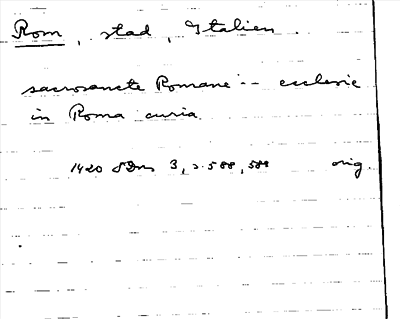 Rom, stad, Italien.
sacrosancte Romane -- ecclesie
in Roma curia
1420 SDns 3, s. 588, 588 orig.